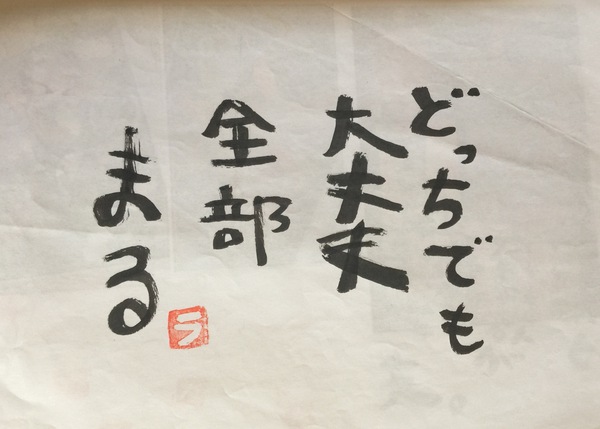 どっちでも
大丈夫
全部
まる
ラ